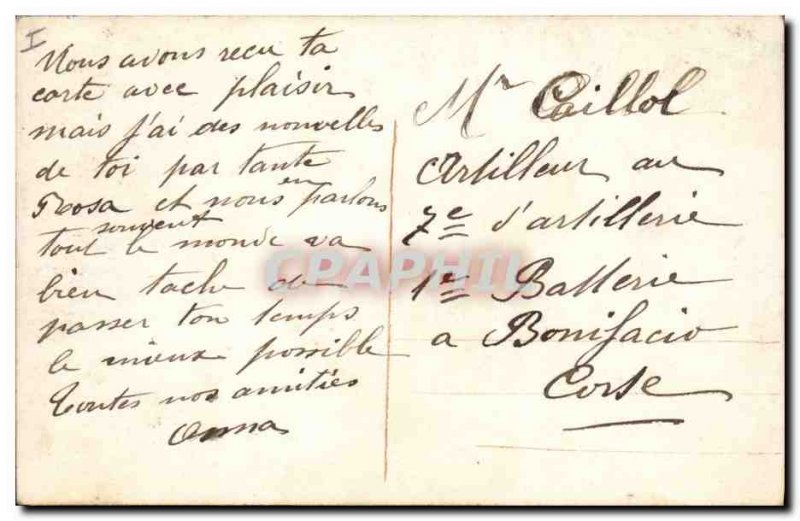 I
Nous avons reçu ta
carte avec plaisir
mais j'ai des nouvelles
de toi par tante
Rosa et nous en parlons
souvent
tout le monde va
bien tache de
passer ton temps
le mieux possible
Toutes nos amitiés
Anna
Mr Caillol
Artilleur au
7e d'artillerie
1e Batterie
a Bonifacio
Corse
CPAPHIL